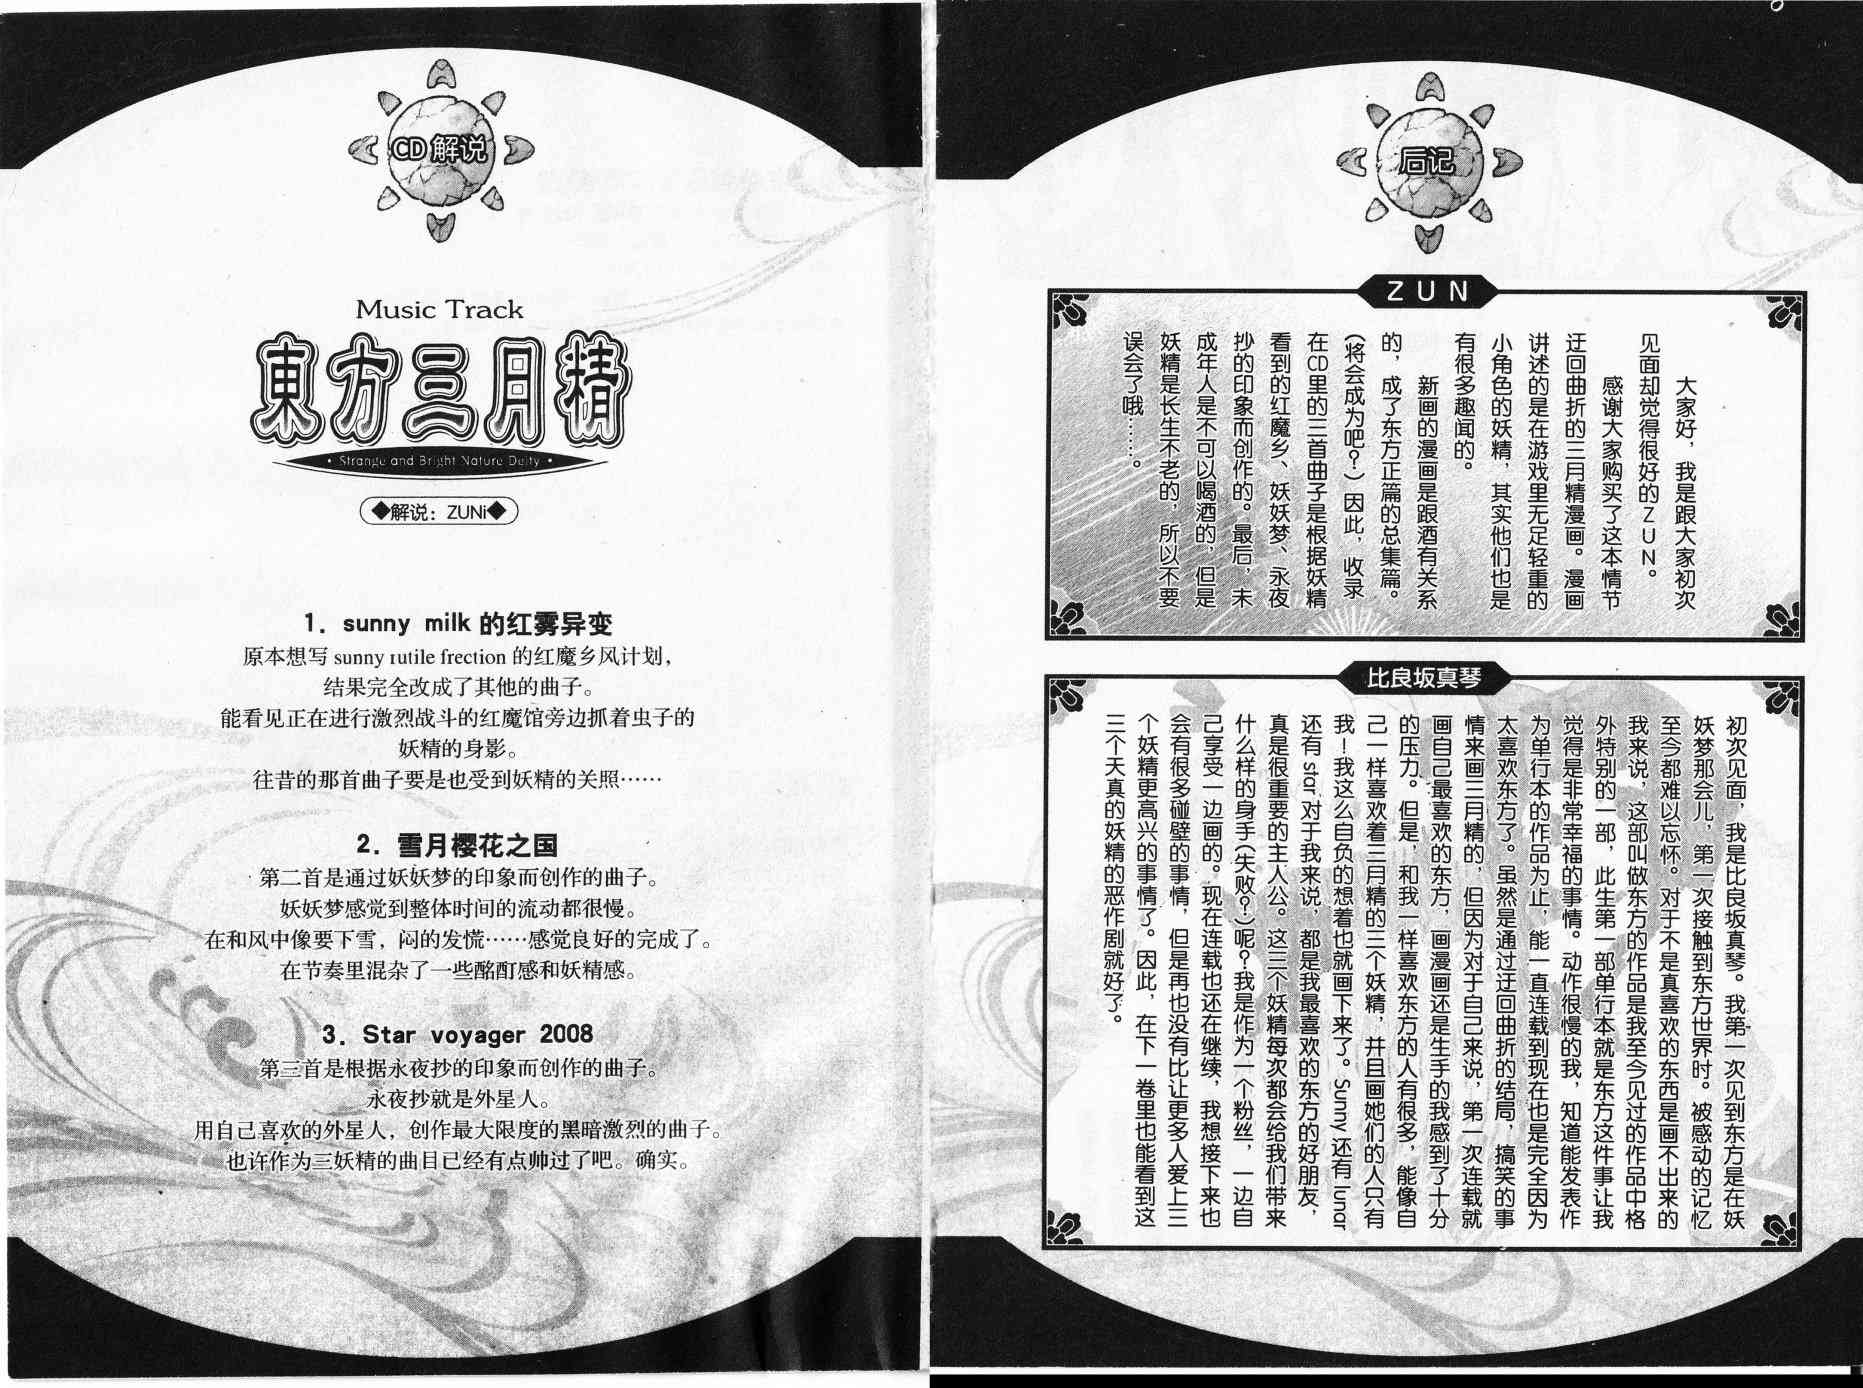 CD解说
Music Track
東方三月精
• Strange and Bright Nature Deity •
◆解说：ZUNi◆
1．sunny milk的红雾异变
原本想写 sunny rutile frection 的红魔乡风计划，
结果完全改成了其他的曲子。
能看见正在进行激烈战斗的红魔馆旁边抓着虫子的
妖精的身影。
往昔的那首曲子要是也受到妖精的关照……
2．雪月樱花之国
第二首是通过妖妖梦的印象而创作的曲子。
妖妖梦感觉到整体时间的流动都很慢。
在和风中像要下雪，闷的发慌……感觉良好的完成了。
在节奏里混杂了一些酩酊感和妖精感。
3．Star voyager 2008
第三首是根据永夜抄的印象而创作的曲子。
永夜抄就是外星人。
用自己喜欢的外星人，创作最大限度的黑暗激烈的曲子。
也许作为三妖精的曲目已经有点帅过了吧。确实。
后记
ZUN
大家好，我是跟大家初次
见面却觉得很好的ZUN。
感谢大家购买了这本情节
迂回曲折的三月精漫画。漫画
讲述的是在游戏里无足轻重的
小角色的妖精，其实他们也是
有很多趣闻的。
新画的漫画是跟酒有关系
的，成了东方正篇的总集篇。
(将会成为吧？)因此，收录
在CD里的三首曲子是根据妖精
看到的红魔乡、妖妖梦、永夜
抄的印象而创作的。最后，未
成年人是不可以喝酒的，但是
妖精是长生不老的，所以不要
误会了哦……。
比良坂真琴
初次见面，我是比良坂真琴。我第一次见到东方是在妖
妖梦那会儿，第一次接触到东方世界时。被感动的记忆
至今都难以忘怀。对于不是真喜欢的东西是画不出来的
我来说，这部叫做东方的作品是我至今见过的作品中格
外特别的一部，此生第一部单行本就是东方这件事让我
觉得是非常幸福的事情。动作很慢的我，知道能发表作
为单行本的作品为止，能一直连载到现在也是完全因为
太喜欢东方了。虽然是通过迂回曲折的结局，搞笑的事
情来画三月精的，但因为对于自己来说，第一次连载就
画自己最喜欢的东方，画漫画还是生手的我感到了十分
的压力。但是，和我一样喜欢东方的人有很多，能像自
己一样喜欢着三月精的三个妖精，并且画她们的人只有
我！我这么自负的想着也就画下来了。Sunny还有lunar
还有star对于我来说，都是我最喜欢的东方的好朋友，
真是很重要的主人公。这三个妖精每次都会给我们带来
什么样的身手(失败？)呢？我是作为一个粉丝，一边自
己享受一边画的。现在连载也还在继续，我想接下来也
会有很多碰壁的事情，但是再也没有比让更多人爱上三
个妖精更高兴的事情了。因此，在下一卷里也能看到这
三个天真的妖精的恶作剧就好了。